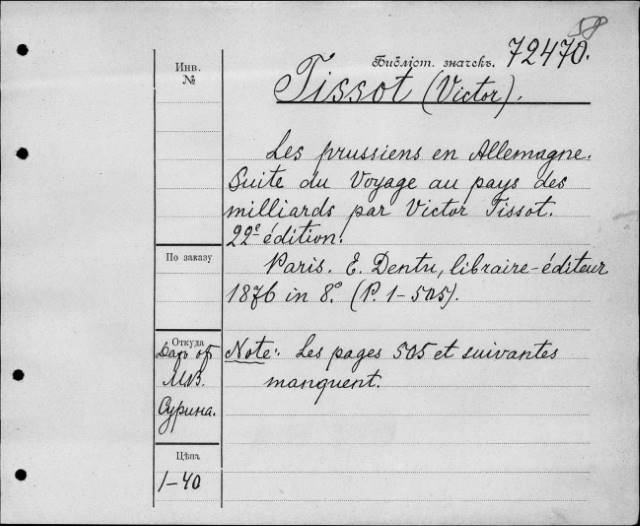 58
Библіот. значекъ. 72470.
Инв.
№
Tissot (Victor).
Les prussiens en Allemagne.
Suite du Voyage au pays des
milliards par Victor Tissot.
22e édition.
По заказу
Paris. E. Dentu, libraire-éditeur
1876 in 8.° (P. 1-505).
Откуда
Даръ от
М.В.
Сурина.
Note: Les pages 505 et suivantes
manquent.
Цѣна
1-40